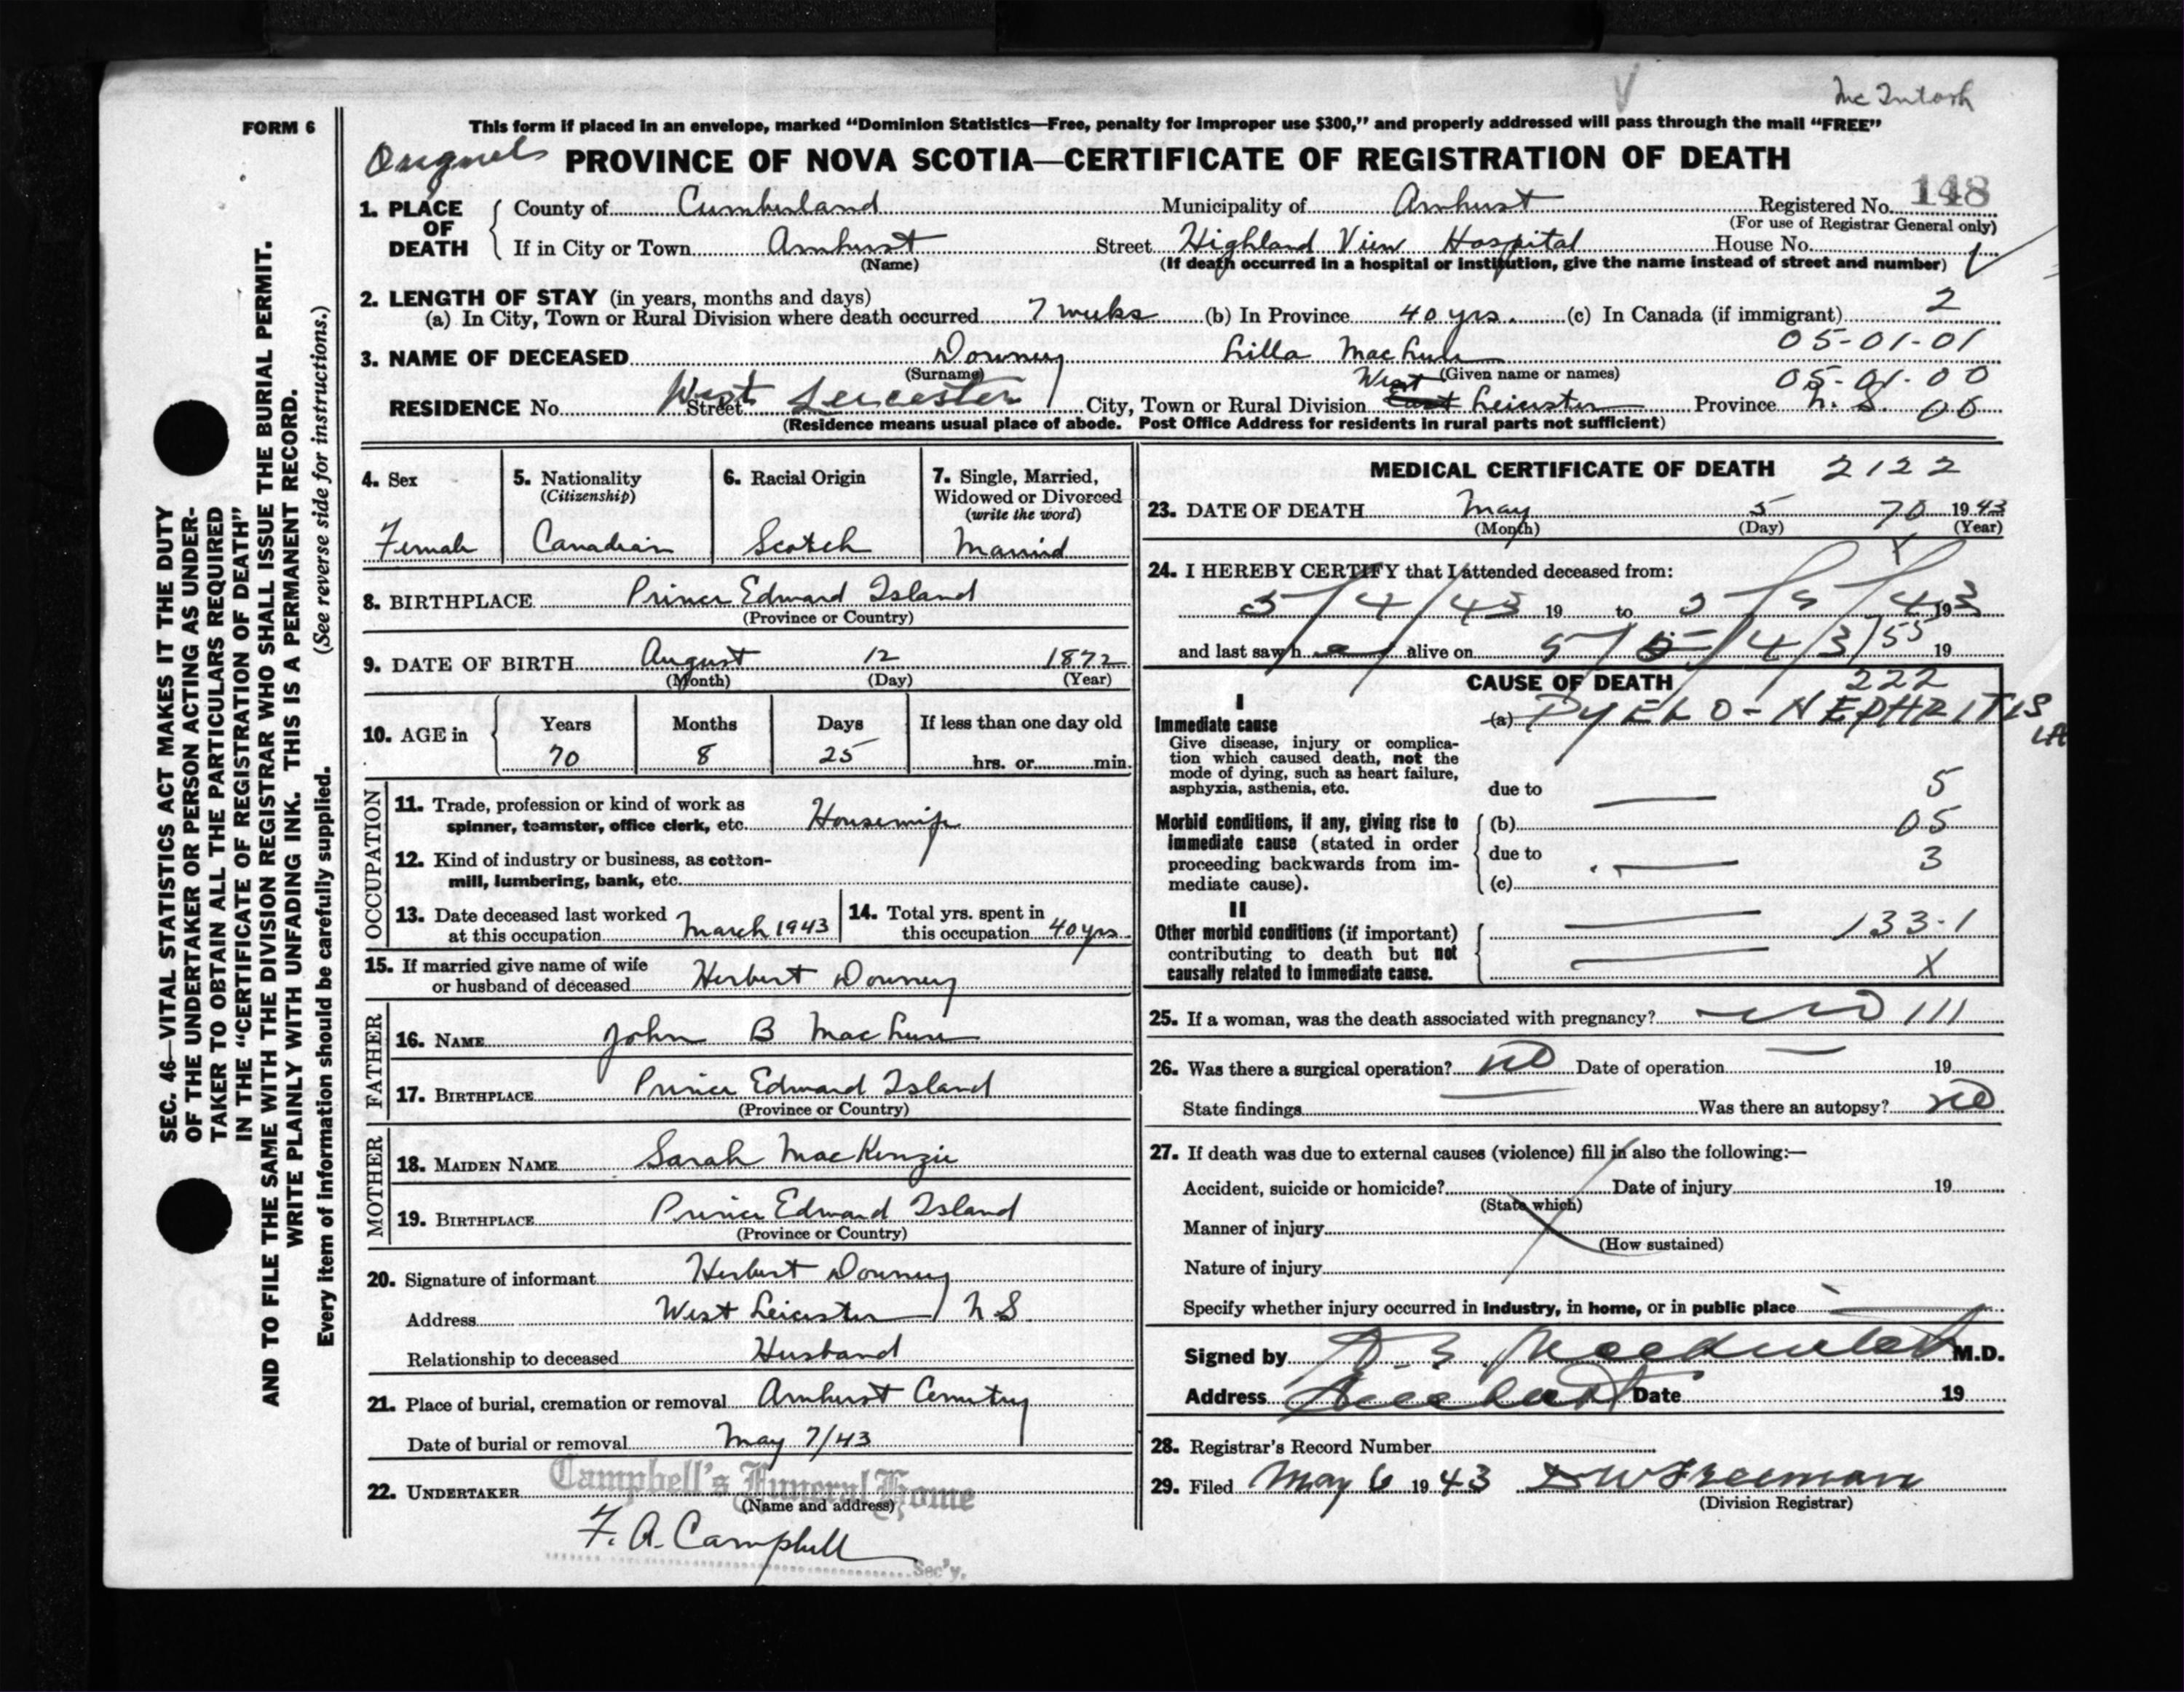 McIntosh
FORM 6
This form if placed in an envelope, marked “Dominion Statistics—Free, penalty for improper use $300,” and properly addressed will pass through the mail “FREE”
PROVINCE OF NOVA SCOTIA—CERTIFICATE OF REGISTRATION OF DEATH
148
1. PLACE OF DEATH
County of Cumberland Municipality of Amherst Registered No.
(For use of Registrar General only)
If in City or Town Amherst Street Highland View Hospital House No.
(Name) (If death occurred in a hospital or institution, give the name instead of street and number)
2. LENGTH OF STAY (in years, months and days)
(a) In City, Town or Rural Division where death occurred 7 weeks (b) In Province 40 yrs. (c) In Canada (if immigrant) 2
05-01-01
3. NAME OF DECEASED Downey Lilla
(Surname) (Given name or names)
05-01-00
RESIDENCE No. Street West Leicester City, Town or Rural Division West East Leicester Province N. S. 06
(Residence means usual place of abode. Post Office Address for residents in rural parts not sufficient)
4. Sex 5. Nationality (Citizenship) 6. Racial Origin 7. Single, Married, Widowed or Divorced (write the word)
Female Canadian Scotch Married
8. BIRTHPLACE Prince Edward Island
(Province or Country)
9. DATE OF BIRTH August 12 1872
(Month) (Day) (Year)
10. AGE in Years Months Days If less than one day old
70 8 25 hrs. or min.
OCCUPATION
11. Trade, profession or kind of work as spinner, teamster, office clerk, etc. Housewife
12. Kind of industry or business, as cotton-mill, lumbering, bank, etc.
13. Date deceased last worked at this occupation March 1943
14. Total yrs. spent in this occupation 40 yrs.
15. If married give name of wife or husband of deceased Herbert Downey
FATHER
16. NAME John B
17. BIRTHPLACE Prince Edward Island
(Province or Country)
MOTHER
18. MAIDEN NAME Sarah MacKenzie
19. BIRTHPLACE Prince Edward Island
(Province or Country)
20. Signature of informant Herbert Downey
Address West Leicester N S.
Relationship to deceased Husband
21. Place of burial, cremation or removal Amherst Cemetry
Date of burial or removal May 7/43
22. UNDERTAKER Campbell's Funeral Home
(Name and address)
F. A. Campbell
Sec'y.
MEDICAL CERTIFICATE OF DEATH 2122
23. DATE OF DEATH May 5 70 1943
(Month) (Day) (Year)
24. I HEREBY CERTIFY that I attended deceased from:
5/4/43 19 to 5/5/43 19
and last saw h alive on 5/5/43 19
55
CAUSE OF DEATH
222
I
Immediate cause
(a) PYELO-NEPHRITIS
Give disease, injury or complication which caused death, not the mode of dying, such as heart failure, asphyxia, asthenia, etc.
due to 5
Morbid conditions, if any, giving rise to immediate cause (stated in order proceeding backwards from immediate cause).
(b) 05
due to 3
(c)
II
Other morbid conditions (if important) contributing to death but not causally related to immediate cause.
133-1
X
25. If a woman, was the death associated with pregnancy? no 111
26. Was there a surgical operation? no Date of operation 19
State findings Was there an autopsy? no
27. If death was due to external causes (violence) fill in also the following:—
Accident, suicide or homicide? Date of injury 19
(State which)
Manner of injury
(How sustained)
Nature of injury
Specify whether injury occurred in industry, in home, or in public place
Signed by M.D.
Address Date 19
28. Registrar's Record Number
29. Filed May 6 1943 D W Freeman
(Division Registrar)
SEC. 46—VITAL STATISTICS ACT MAKES IT THE DUTY
OF THE UNDERTAKER OR PERSON ACTING AS UNDER-
TAKER TO OBTAIN ALL THE PARTICULARS REQUIRED
IN THE “CERTIFICATE OF REGISTRATION OF DEATH”
AND TO FILE THE SAME WITH THE DIVISION REGISTRAR WHO SHALL ISSUE THE BURIAL PERMIT.
WRITE PLAINLY WITH UNFADING INK. THIS IS A PERMANENT RECORD.
Every item of information should be carefully supplied. (See reverse side for instructions.)